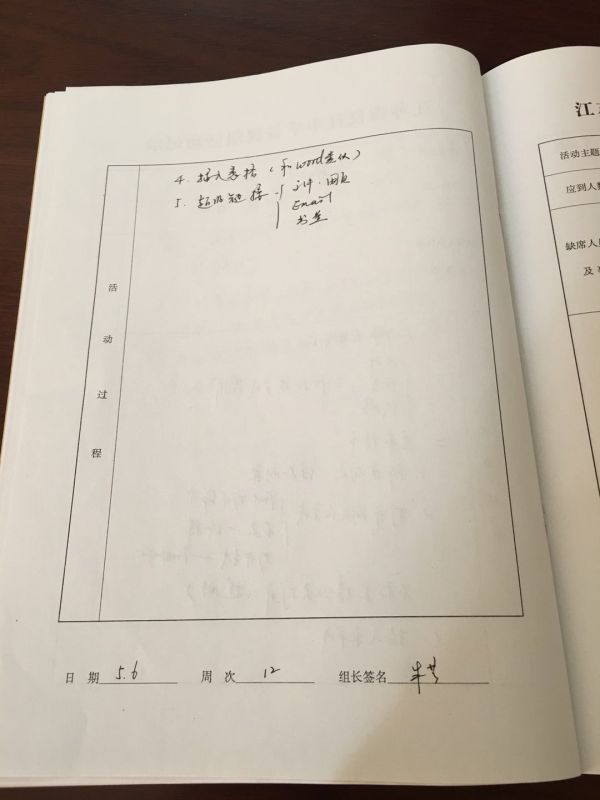 4. 插入表格（和word类似）
5. 超级链接 文件·网页
Email
书签
活动过程
日 期 5.6 周 次 12 组长签名
江
活动主题
应到人数
缺席人员
及事